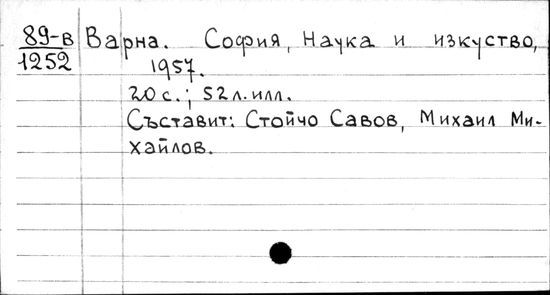 89-в Варна. София, Наука и изкуство,
1252 1957.
20 с.; 52 л. илл.
Съставит: Стойчо Савов, Михаил Ми-
хайлов.